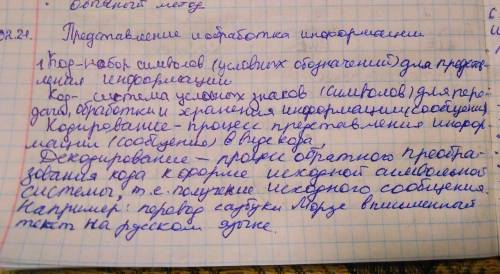 Обычный метод
Представление и обработка информации
1. Код-набор символов (условных обозначений) для предста-
вления информации
Код- система условных знаков (символов) для пере-
дачи, обработки и хранения информации (сообщения)
Кодирование - процесс представления инфор-
мации (сообщения) в виде кода,
Декодирование - процесс обратного преобра-
зования кода к форме исходной символьной
системы, т.е. получение исходного сообщения.
Например: перевод с азбуки Морзе в писменный
текст на русском языке.